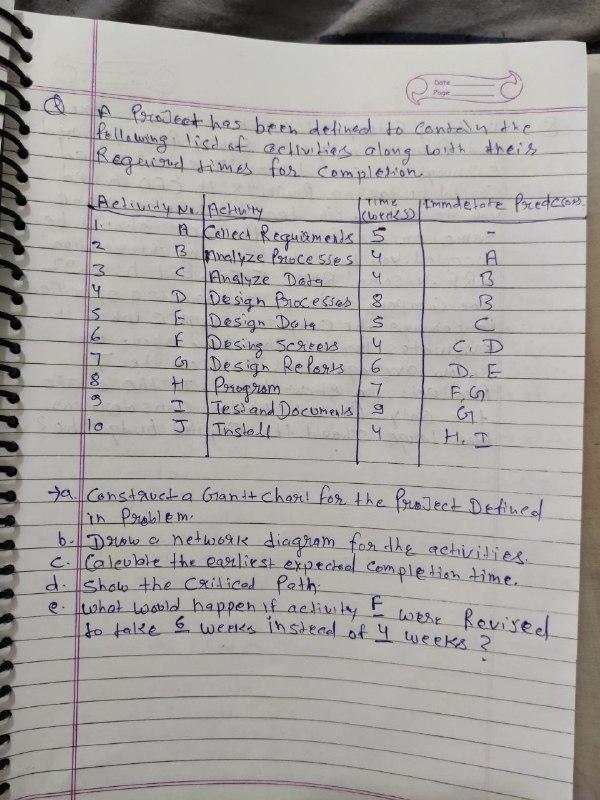 Date
Page
Q A Project has been defined to contain the
following list of activities along with their
Required times for completion.
Activity No. Activity Time (weeks) Immdetate Predccors.
1. A Collect Requirments 5 -
2 B Analyze Processes 4 A
3 C Analyze Data 4 B
4 D Design Processes 8 B
5 E Design Data 5 C
6 F Desing Screens 4 C, D
7 G Design Reports 6 D, E
8 H Program 7 F, G
9 I Test and Documents 9 G
10 J Install 4 H, I
→a. Construct a Gantt Chart for the Project Defined
in Problem.
b. Draw a network diagram for the activities.
c. Calculate the earliest expected completion time.
d. Show the Critical Path.
e. What would happen if activity F were Revised
to take 6 weeks instead of 4 weeks ?